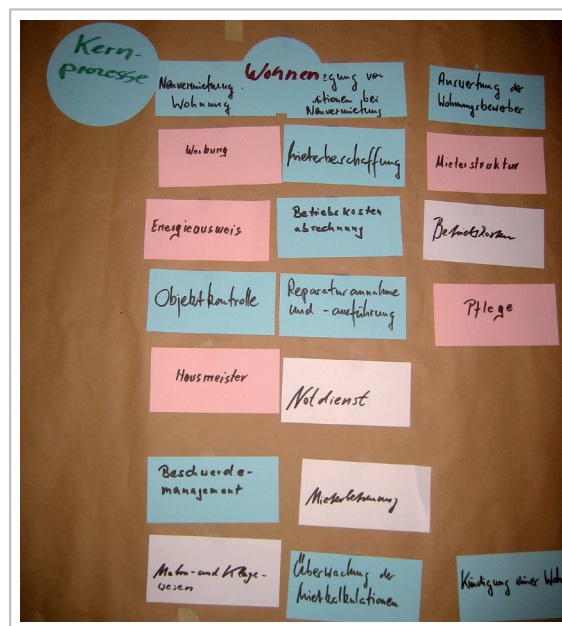 Kern-
prozesse
Wohnen
Neuvermietung
Wohnung
egung von
itionen bei
Neuvermietung
Auswertung der
Wohnungsbewerber
Werbung
Mieterbeschaffung
Mieterstruktur
Energieausweis
Betriebskosten
abrechnung
Betriebskosten
Objektkontrolle
Reparaturannahme
und -ausführung
Pflege
Hausmeister
Notdienst
Beschwerde-
management
Mieterbetreuung
Mahn- und Klage-
wesen
Überwachung der
Mietkalkulationen
Kündigung einer Woh